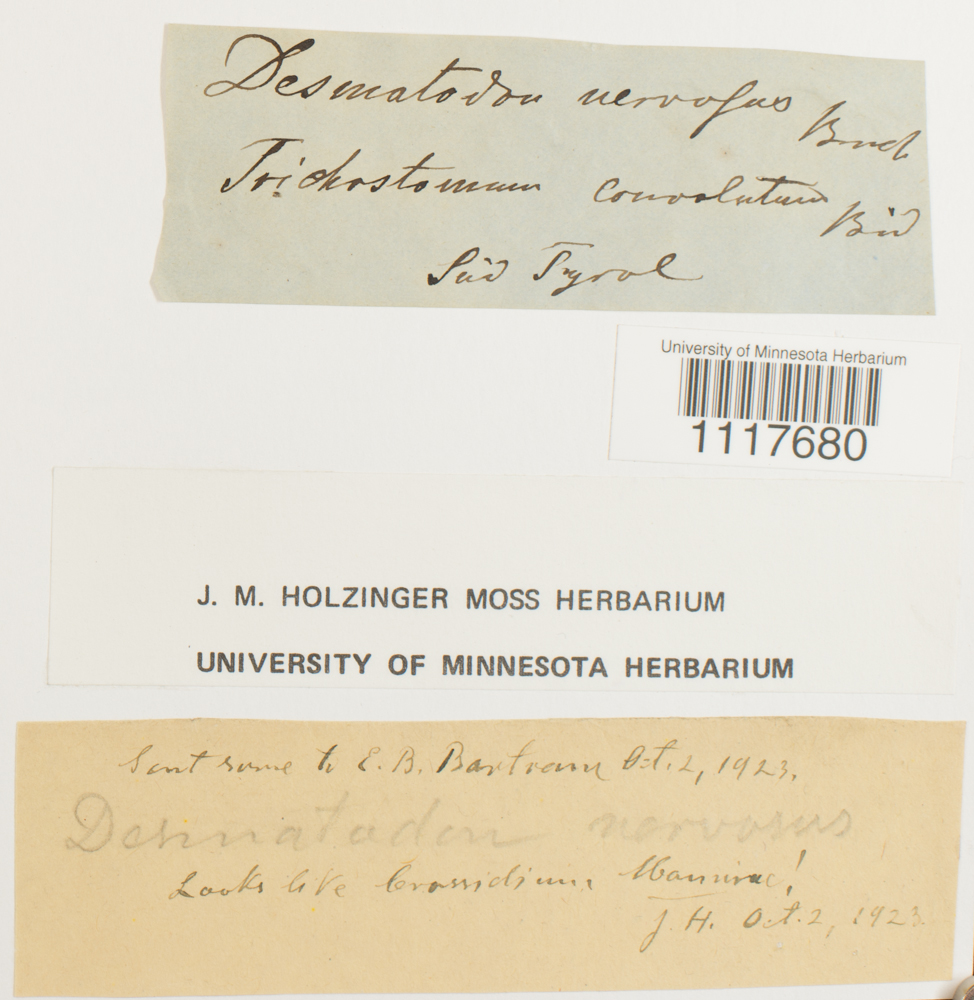 Desmatodon nervosus Bruch
Trichostomum convolutum Brid
Süd Tyrol
University of Minnesota Herbarium
1117680
J. M. HOLZINGER MOSS HERBARIUM
UNIVERSITY OF MINNESOTA HERBARIUM
Sent some to E. B. Bartram Oct. 2, 1923.
Desmatodon nervosus
Looks like Crossidium !
J. H. Oct. 2, 1923